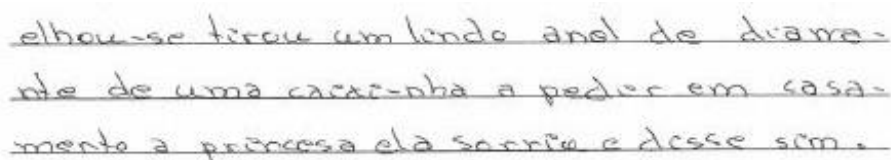 elhou-se tirou um lindo anel de diama-
nte de uma caixi-nha a pedir em casa-
mento a princesa ela sorriu e disse sim.